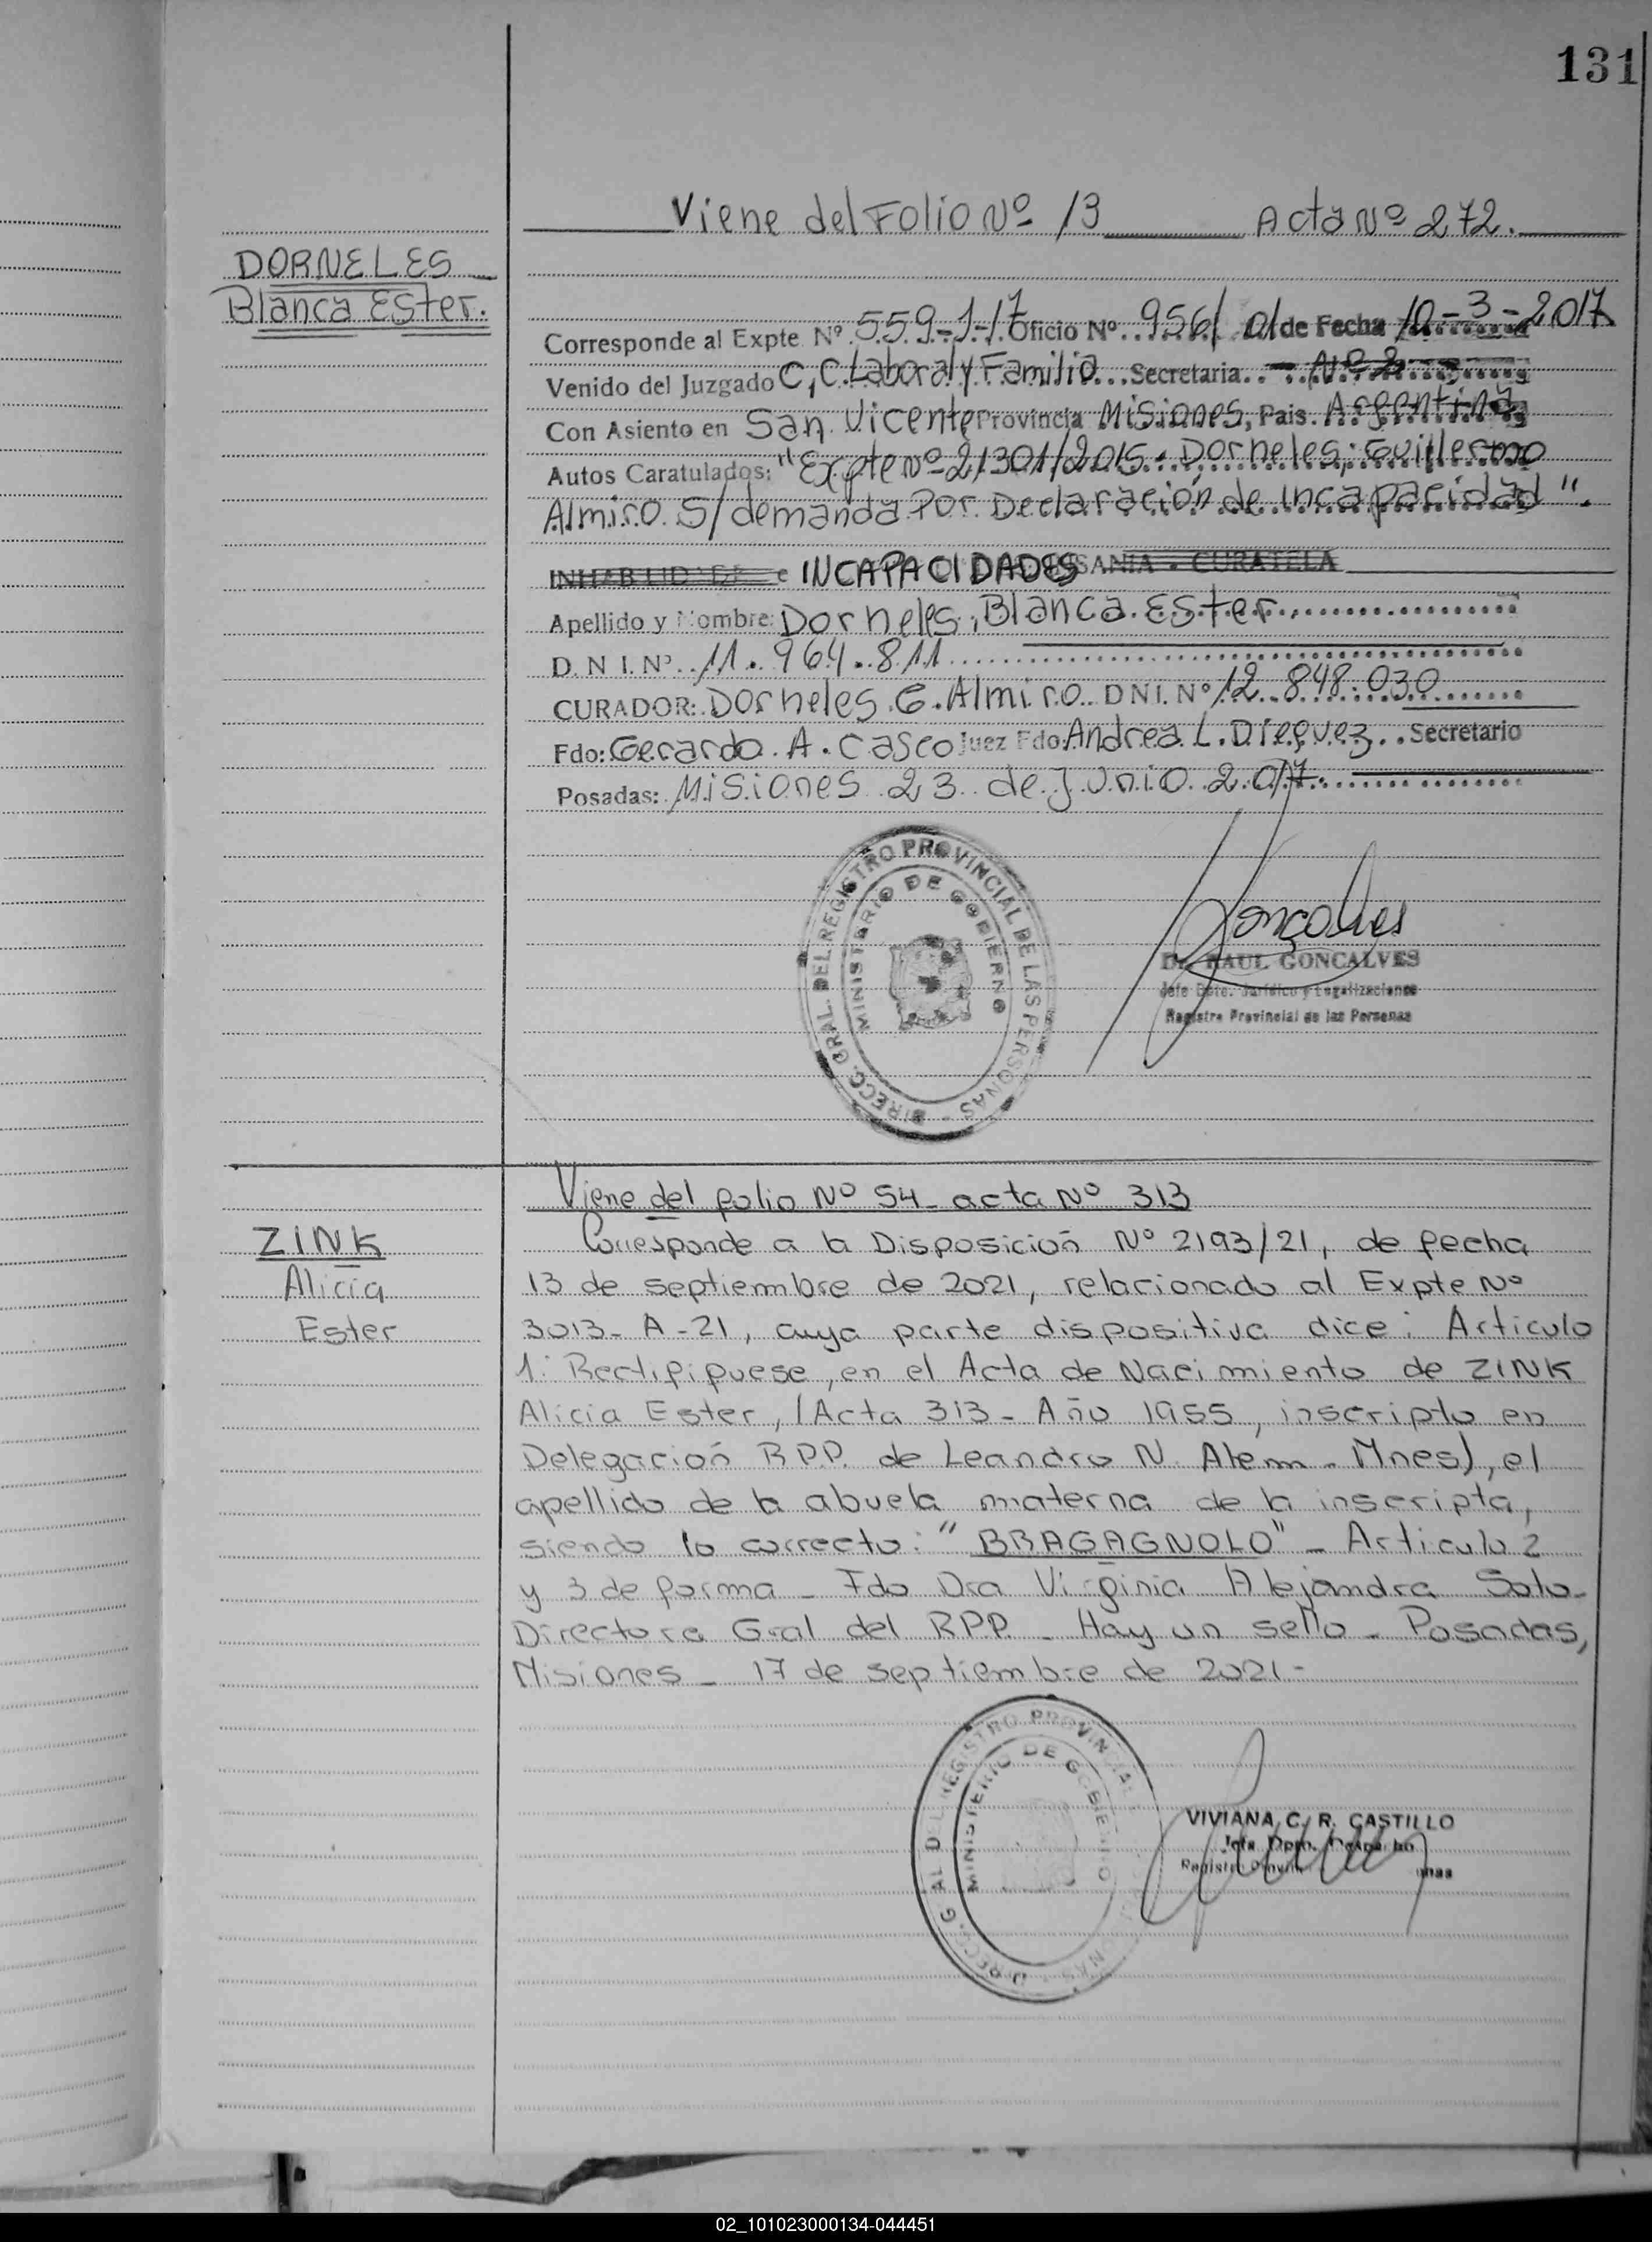 131
Viene del Folio Nº 13 Acta Nº 272.
DORNELES
Blanca Ester.
Corresponde al Expte Nº 559-1-17 Oficio Nº 956/ de Fecha 10-3-2017
Venido del Juzgado C, C. Laboral y Familia Secretaria Nº 2
Con Asiento en San Vicente Provincia Misiones, Pais. Argentina
Autos Caratulados: "Expte Nº 21301/2015. Dorneles, Guillermo
Almiro S/demanda Por Declaración de Incapacidad".
INHABILIDADES e INCAPACIDADES INSANIA - CURATELA
Apellido y Nombre: Dorneles, Blanca Ester
D. N I. Nº 11.964.811
CURADOR: Dorneles G. Almiro DNI. Nº 12.848.030
Fdo: Gerardo A. Casco Juez Fdo: Andrea L. Dieguez Secretario
Posadas: Misiones 23 de Junio 2017.
DIRECC. GRAL. DEL REGISTRO PROVINCIAL DE LAS PERSONAS -
MINISTERIO DE GOBIERNO
Goncalves
Dr. RAUL GONCALVES
Jefe Dpto. Jurídico y Legalizaciones
Registro Provincial de las Personas
Viene del folio Nº 54 - acta Nº 313
ZINK
Alicia
Ester
Corresponde a la Disposición Nº 2193/21, de fecha
13 de septiembre de 2021, relacionado al Expte Nº
3013- A -21, cuya parte dispositiva dice: Articulo
1: Rectifiquese, en el Acta de Nacimiento de ZINK
Alicia Ester, (Acta 313 - Año 1955, inscripto en
Delegación R.P.P. de Leandro N. Alem - Mnes), el
apellido de la abuela materna de la inscripta,
siendo lo correcto: "BRAGAGNOLO" - Articulo 2
y 3 de forma - Fdo Dra Virginia Alejandra Soto
Directora Gral del R.P.P. - Hay un sello - Posadas,
Misiones - 17 de septiembre de 2021-
DIRECC. GRAL DEL REGISTRO PROVINCIAL
MINISTERIO DE GOBIERNO
VIVIANA C. R. CASTILLO
Jefa Dpto. Despacho
02_101023000134-044451